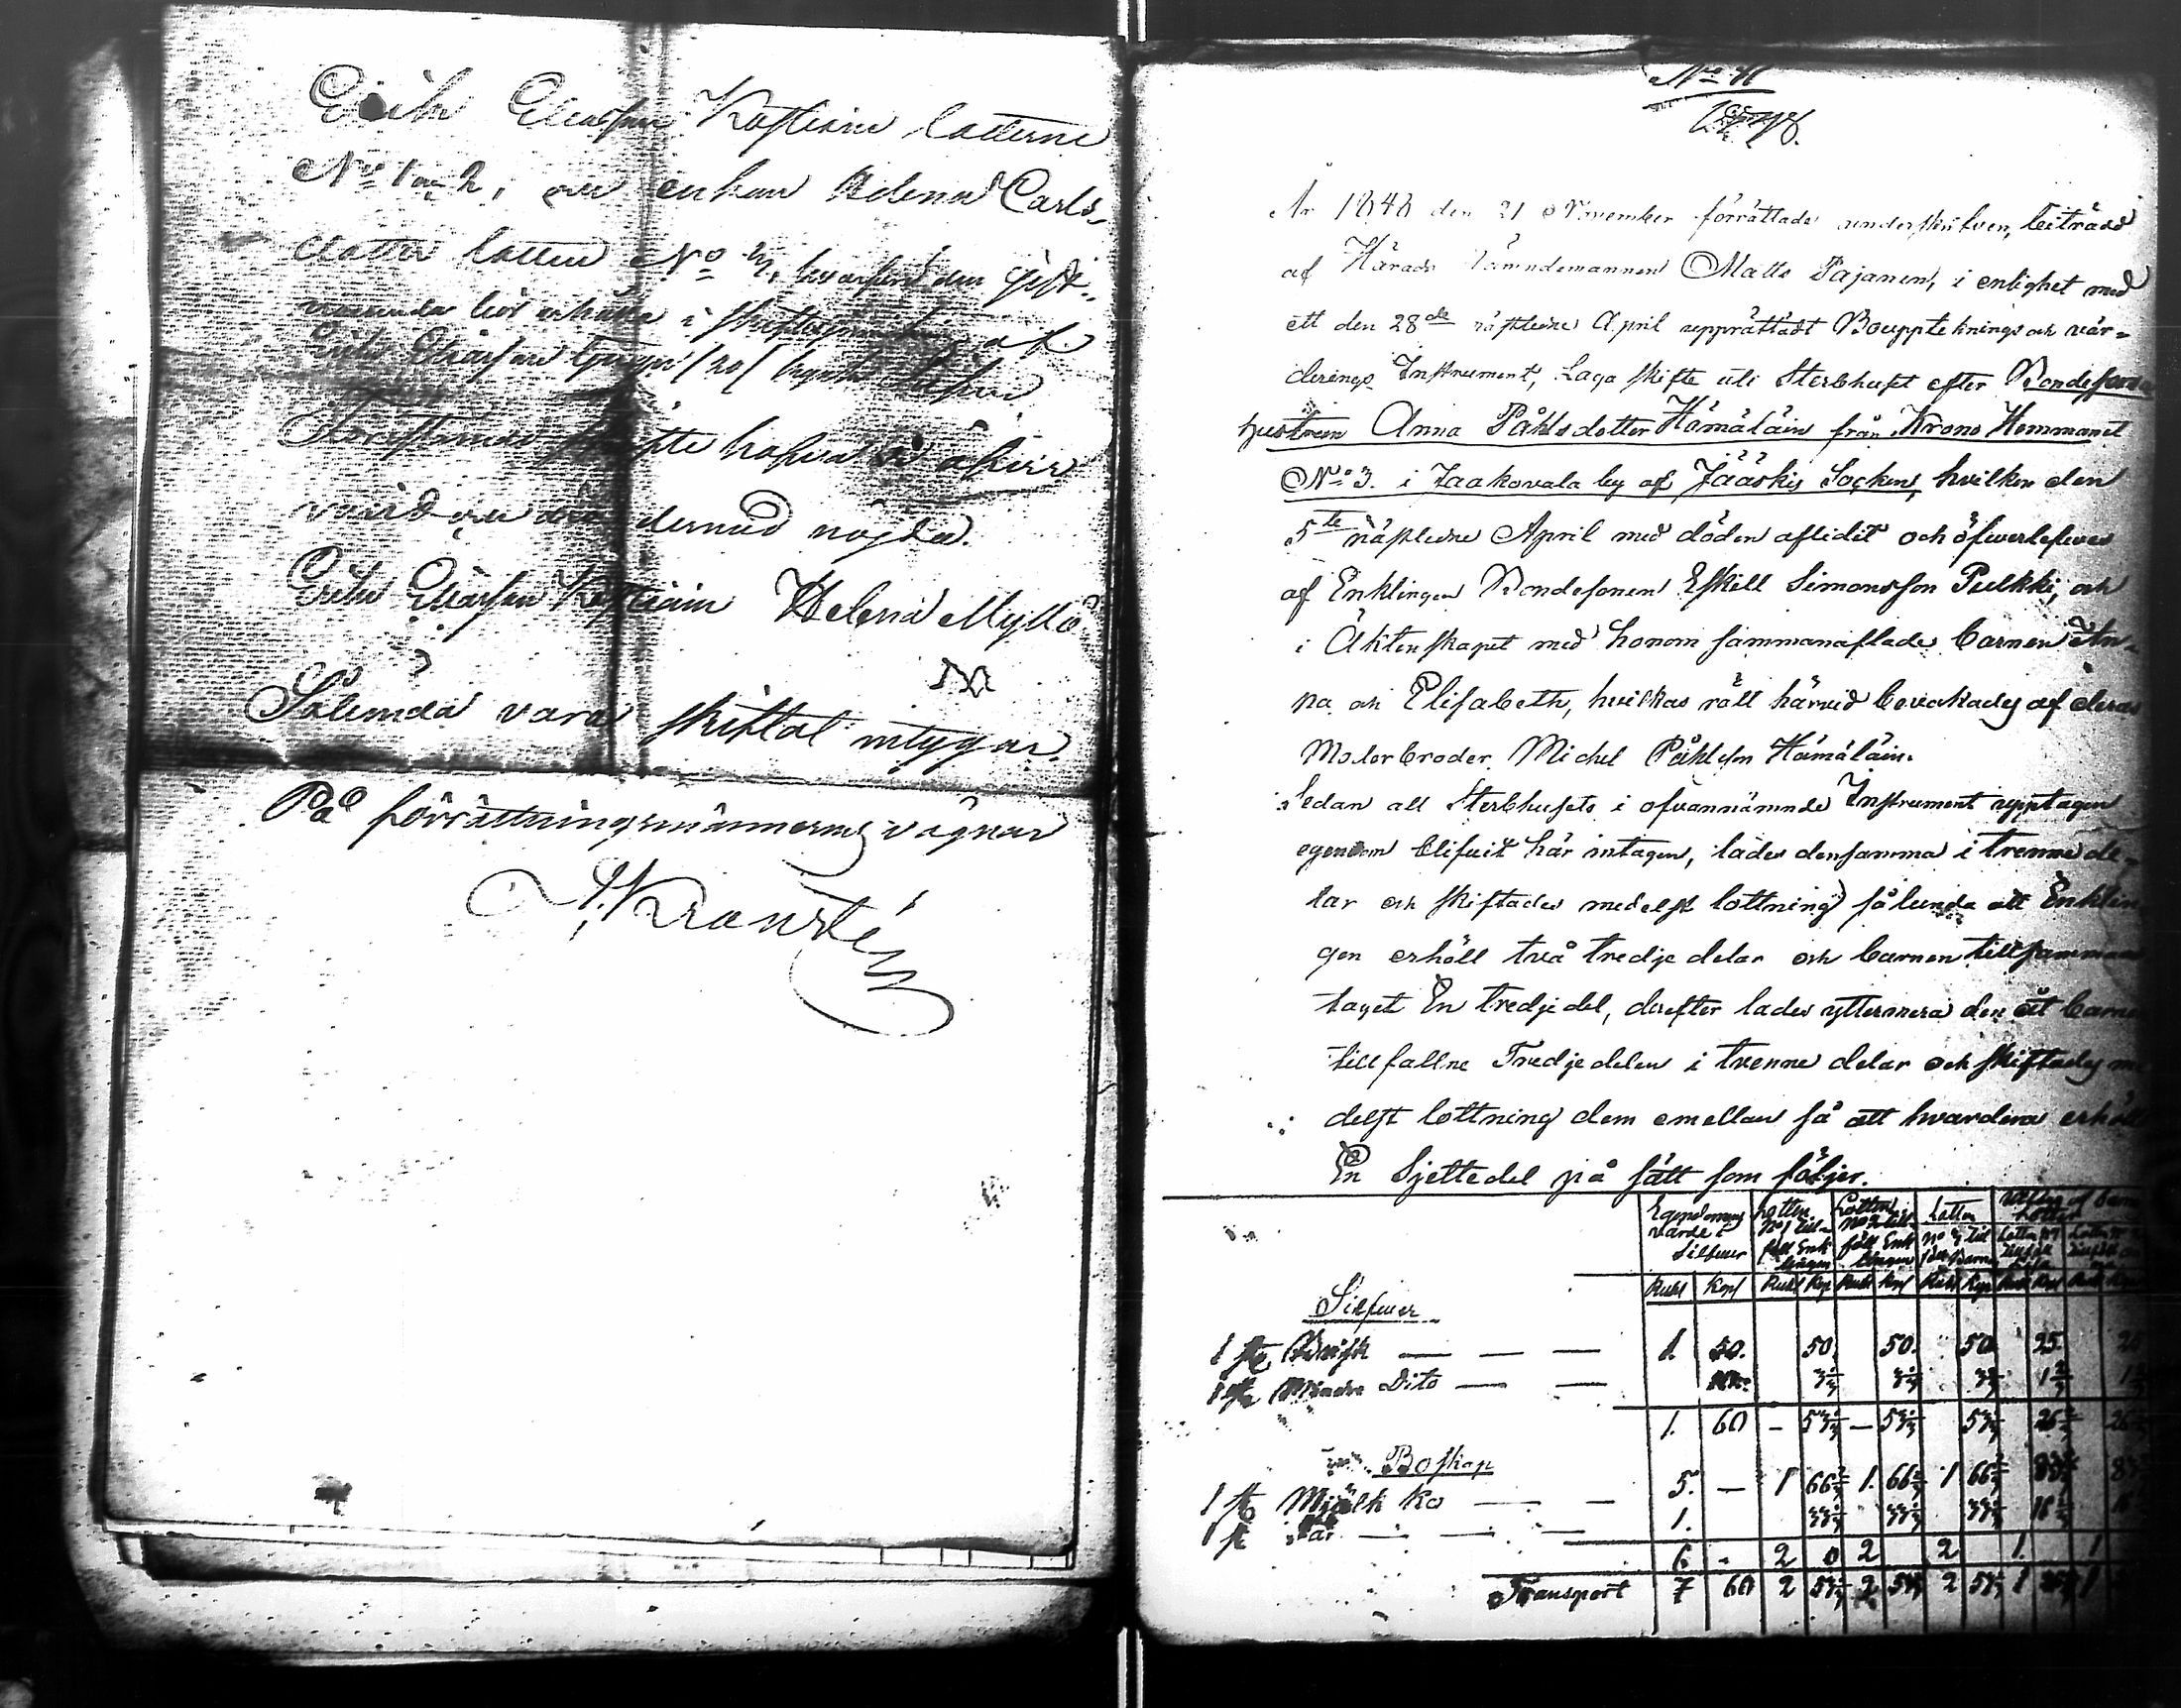 Erik Eliasson Kostiain lotterne
No 1 och 2, och enkan Helena Carls-
dotter lotten No 3,
i
Eliasson /20/
Förestående skifte hafva vi åhörr
och äro dermed nöjda.
Erik Eliasson Kostiain Helena Myllö
Sålunda vara skiftat intygar
På förrättningsmännernes vägnar
A. Kransté
No 41
År 1848 den 21 November förrättade underskrifven, biträdd
af Härads Nämndemannen Matts Pajanen, i enlighet med
ett den 28de näslledne April upprättadt Bouppteknings och vär-
derings Instrument, Laga skifte uti Sterbhuset efter Bondesons
hustrun Anna Påhlsdotter Hämäläin från Krono Hemmanet
No 3. i Jaakovala by af Jääskis Socken, hvilken den
5te näslledne April med döden aflidit och öfwerlefwes
af Enklingen Bondesonen Eskell Simonsson Pulkki, och
i Äktenskapet med honom sammanaflade barnen An-
na och Elisabeth, hvilkas rätt härwid bewakades af deras
Moderbroder Michel Påhlsson Hämäläin.
Sedan all Sterbhusets i ofvannämnde Instrument upptagen
egendom blifvit här intagen, lades densamma i trenne de-
lar och skiftades medelst lottning sålunda att Enklin
gen erhöll två tredje delar och barnen tillsamman
taget En tredjedel, derefter lades yttermera den åt barnen
tillfallne Tredjedelen i tvenne delar och skiftades me
delst lottning dem emellan så att hvardera erhöll
En Sjettedel på sätt som följer.
Egendomens värde i Silfver Lotten No 1 till- föll Enk- lingen Lotten No 2 till- föll Enk- lingen Lotten No 3 till föll Barnen
Rubl Kop Rubl Kop Rubl Kop Rubl Kop Rubl Kop
Silfwer
1 st — — — 1. 50. 50 50. 50 25.
1 st Mindre Dito — — 3⅓ 3⅓ 3⅓ 1⅔ 1⅔
1. 60 — 53⅓ — 53⅓ 53⅓ 26⅔ 26
Boskap
1 st Mjölk ko — — 5. — 1 66⅔ 1. 66⅔ 1 66⅔ 83⅓
1 st Får — — — 1. 33⅓ 33⅓ 33⅓ 16⅔
6 - 2 0 2 2 1. 1
Transport 7 60 2 53⅓ 2 53⅓ 2 53⅓ 1 1